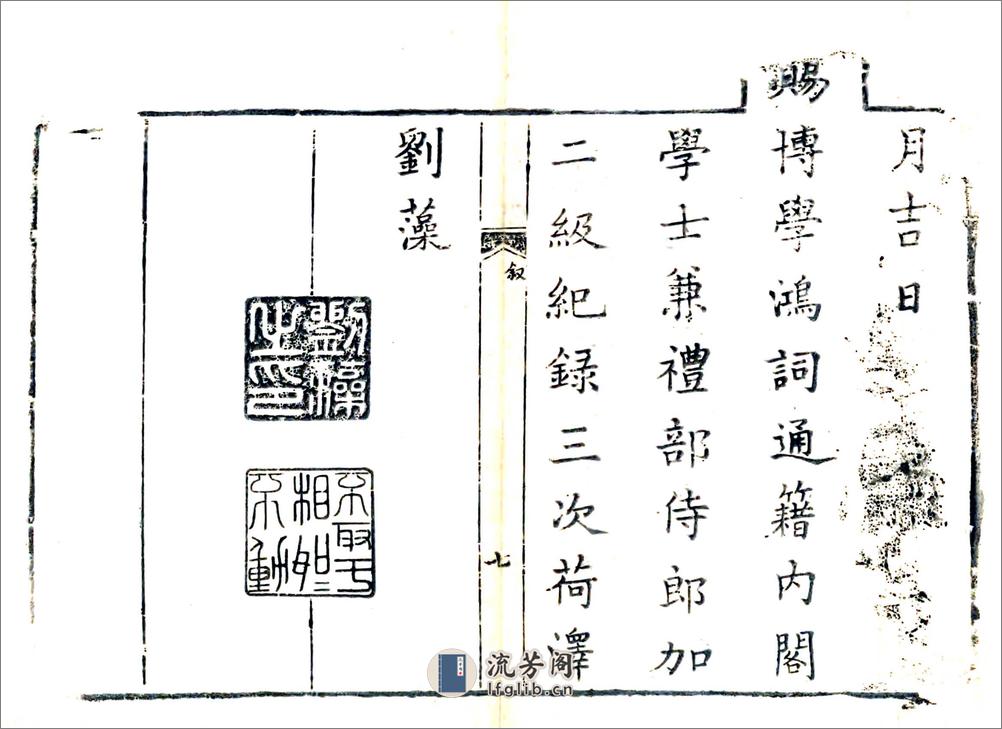 月吉日
賜
博學鴻詞通籍内閣
學士兼禮部侍郎加
二級紀録三次荷澤
叙
七
劉藻
劉藻之印
不取于相如如不動
流芳阁
lfglib.cn